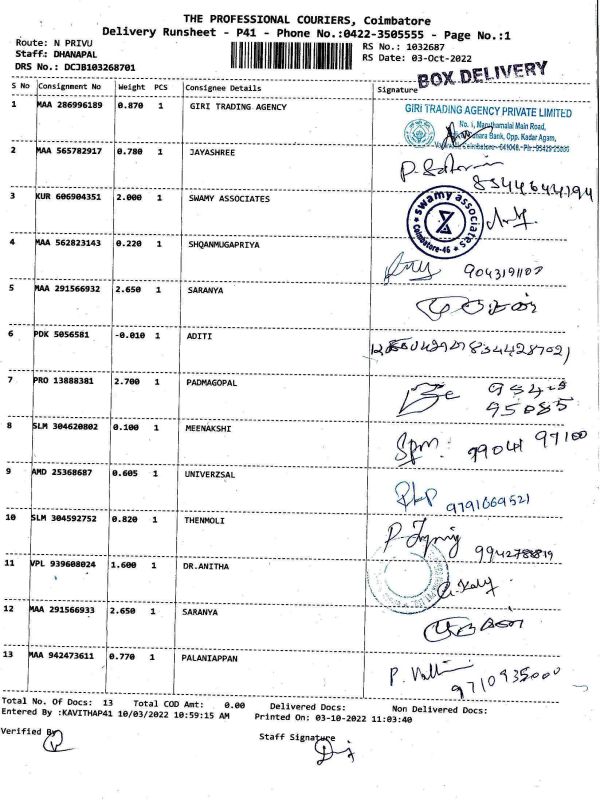 THE PROFESSIONAL COURIERS, Coimbatore
Delivery Runsheet - P41 - Phone No.:0422-3505555 - Page No.:1
Route: N PRIVU
Staff: DHANAPAL
DRS No.: DCJB103268701
RS No.: 1032687
RS Date: 03-Oct-2022
BOX DELIVERY
S No Consignment No Weight PCS Consignee Details Signature
1 MAA 286996189 0.870 1 GIRI TRADING AGENCY
GIRI TRADING AGENCY PRIVATE LIMITED
No. 1, Maruthamalai Main Road,
Bank, Opp. Kadar Agam,
2 MAA 565782917 0.780 1 JAYASHREE
8344644194
3 KUR 606904351 2.000 1 SWAMY ASSOCIATES
swamy associates
Coimbatore-46
4 MAA 562823143 0.220 1 SHQANMUGAPRIYA
5 MAA 291566932 2.650 1 SARANYA
6 PDK 5056581 -0.010 1 ADITI
7 PRO 13888381 2.700 1 PADMAGOPAL
95085
8 SLM 304620802 0.100 1 MEENAKSHI
Spm. 99041 97100
9 AMD 25368687 0.605 1 UNIVERZSAL
9791669521
10 SLM 304592752 0.820 1 THENMOLI
9942788819
11 VPL 939608024 1.600 1 DR.ANITHA
12 MAA 291566933 2.650 1 SARANYA
13 MAA 942473611 0.770 1 PALANIAPPAN
9710935000
Total No. Of Docs: 13 Total COD Amt: 0.00 Delivered Docs: Non Delivered Docs:
Entered By :KAVITHAP41 10/03/2022 10:59:15 AM Printed On: 03-10-2022 11:03:40
Verified By
Staff Signature